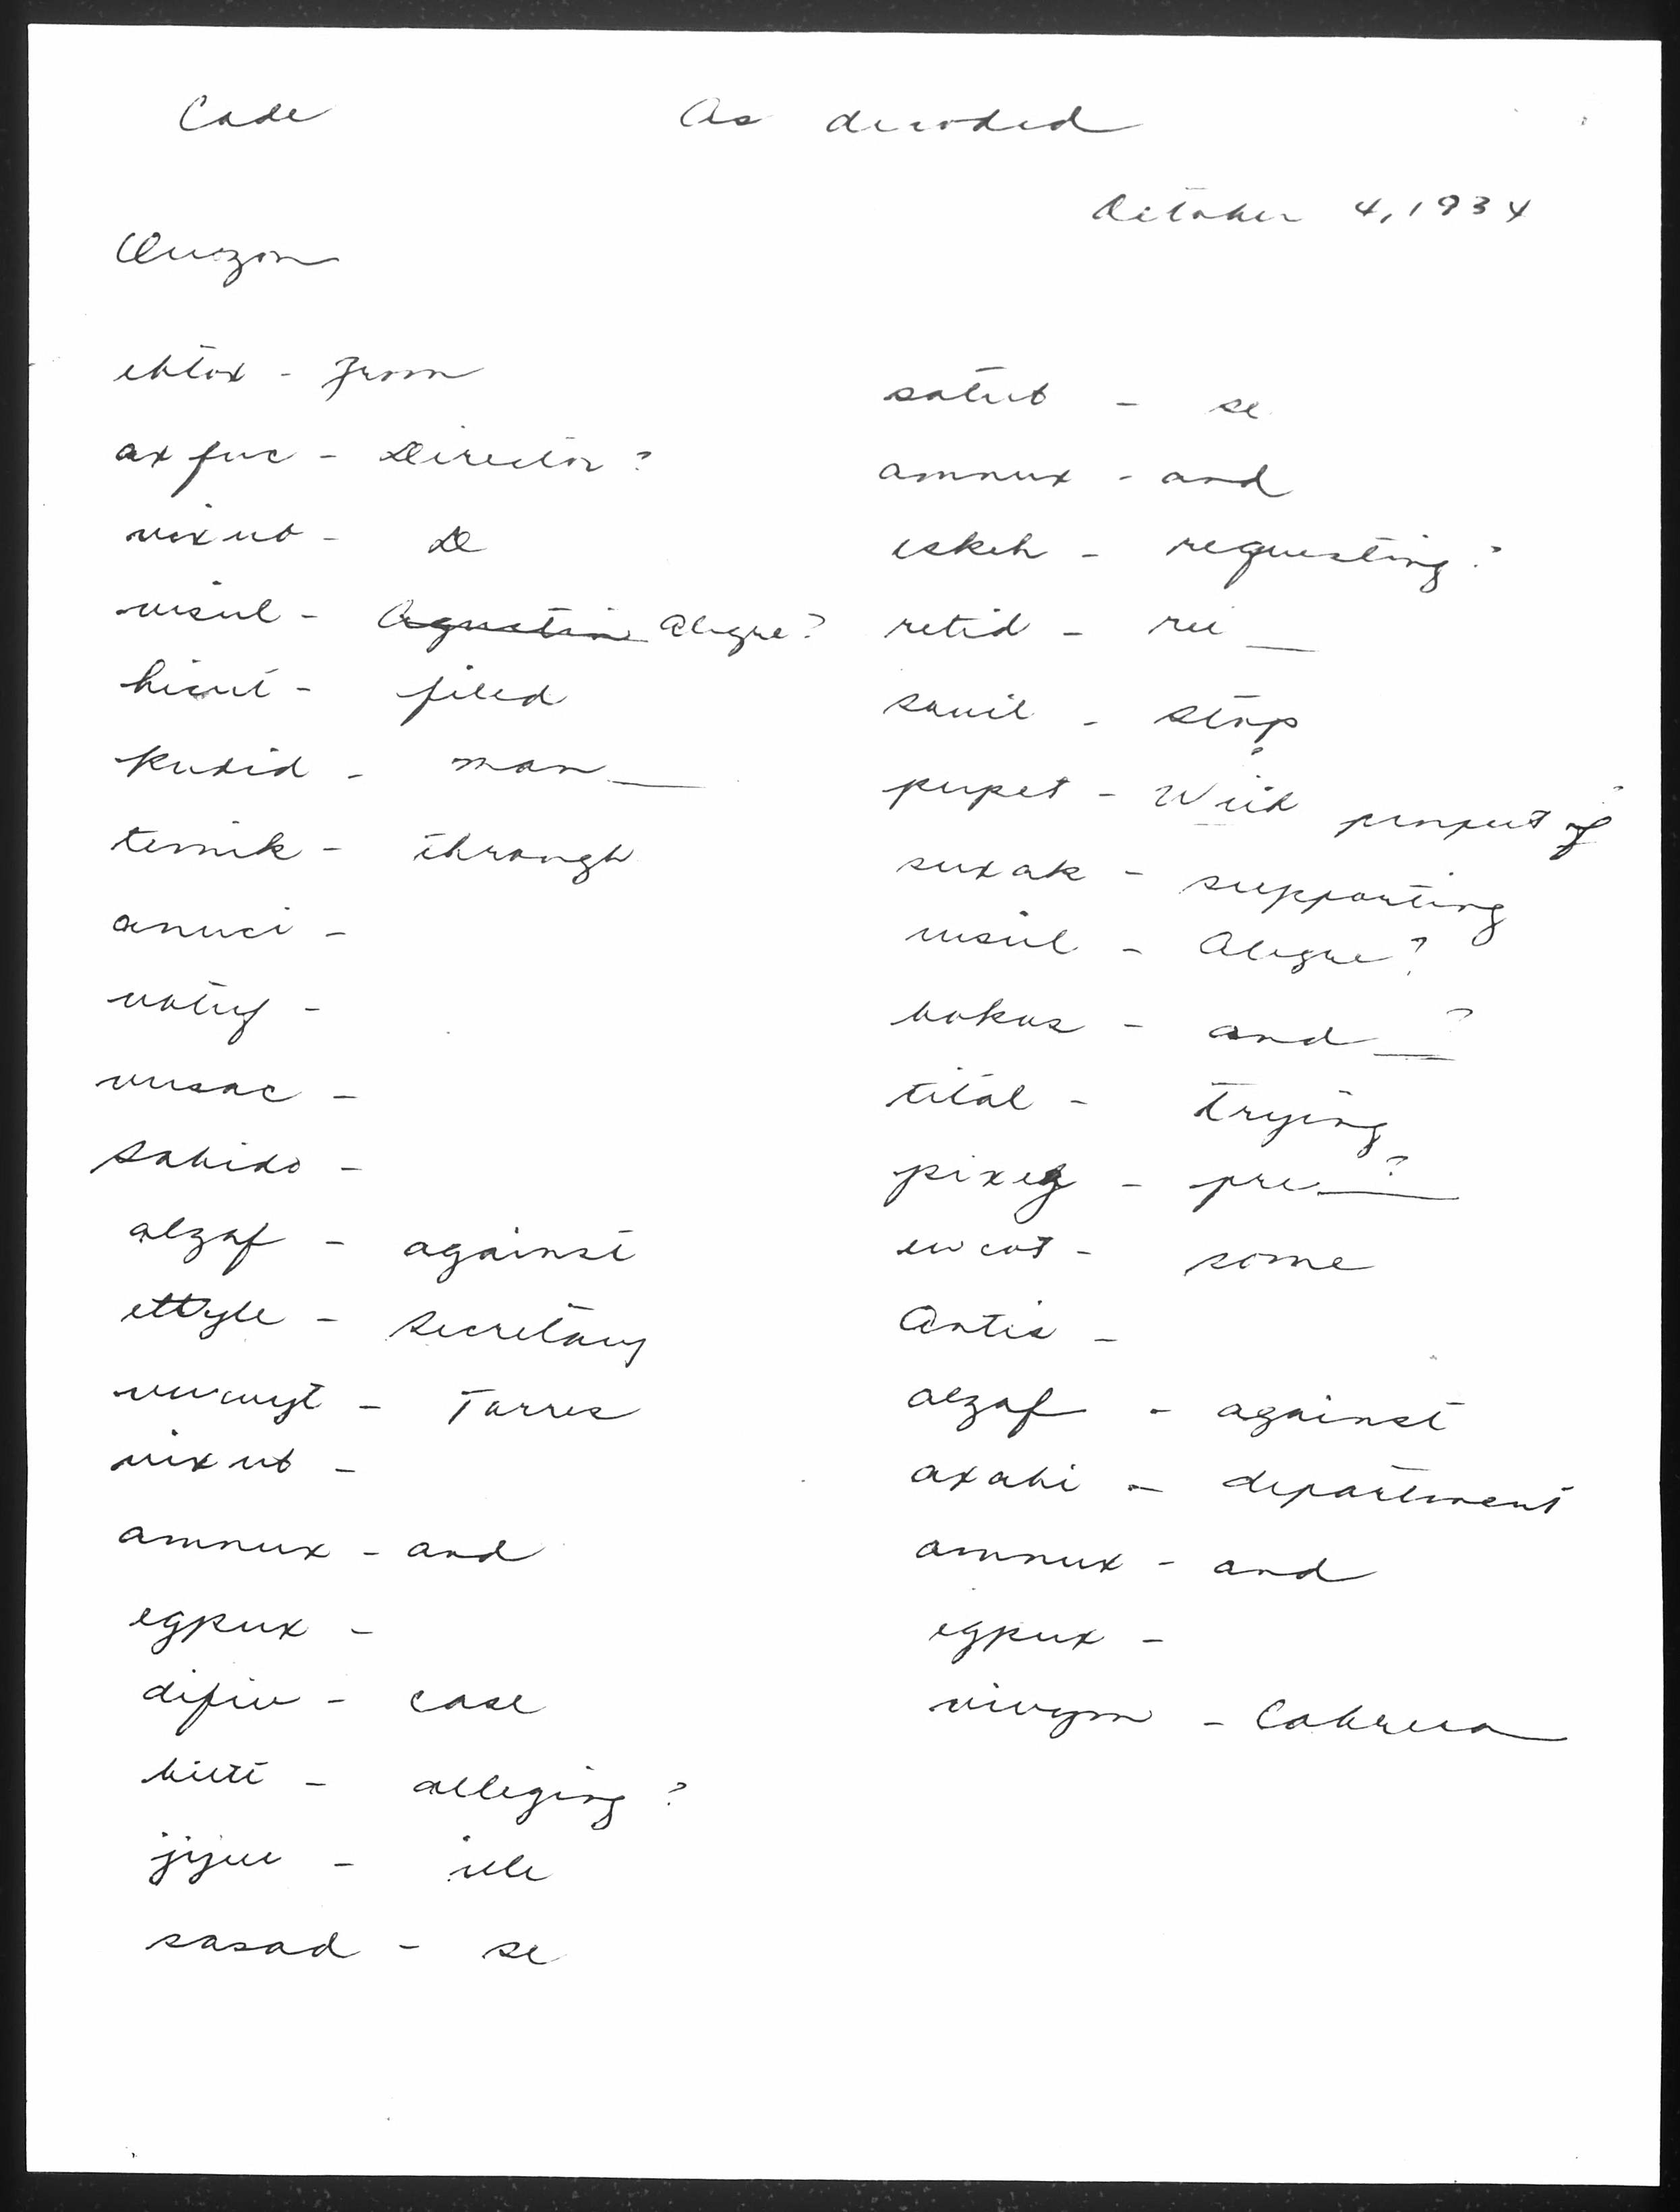 Code As decoded
October 4, 1934
Quezon
ehtox - from
axfuc - Director?
vixub - De
visul - Agustin Alegre?
hicut - filed
kudid - man__
temik - through
anuci -
vatuf -
vusac -
sahido -
alzaf - against
ettyle - Secretary
Torres
vixub -
amnux - and
egpux -
difiw - case
alleging?
ille
sasad - se
satub - se
amnux - and
eskeh - requesting?
retid - rei__
sauil - stop
pupet - With of
suxak - supporting
visul - Alegre?
bokus - and __?
tital - Trying
pixeg - pre__?
ewcot - some
Antis -
alzaf - against
axabi - department
amnux - and
egpux -
vivym - Cabrera